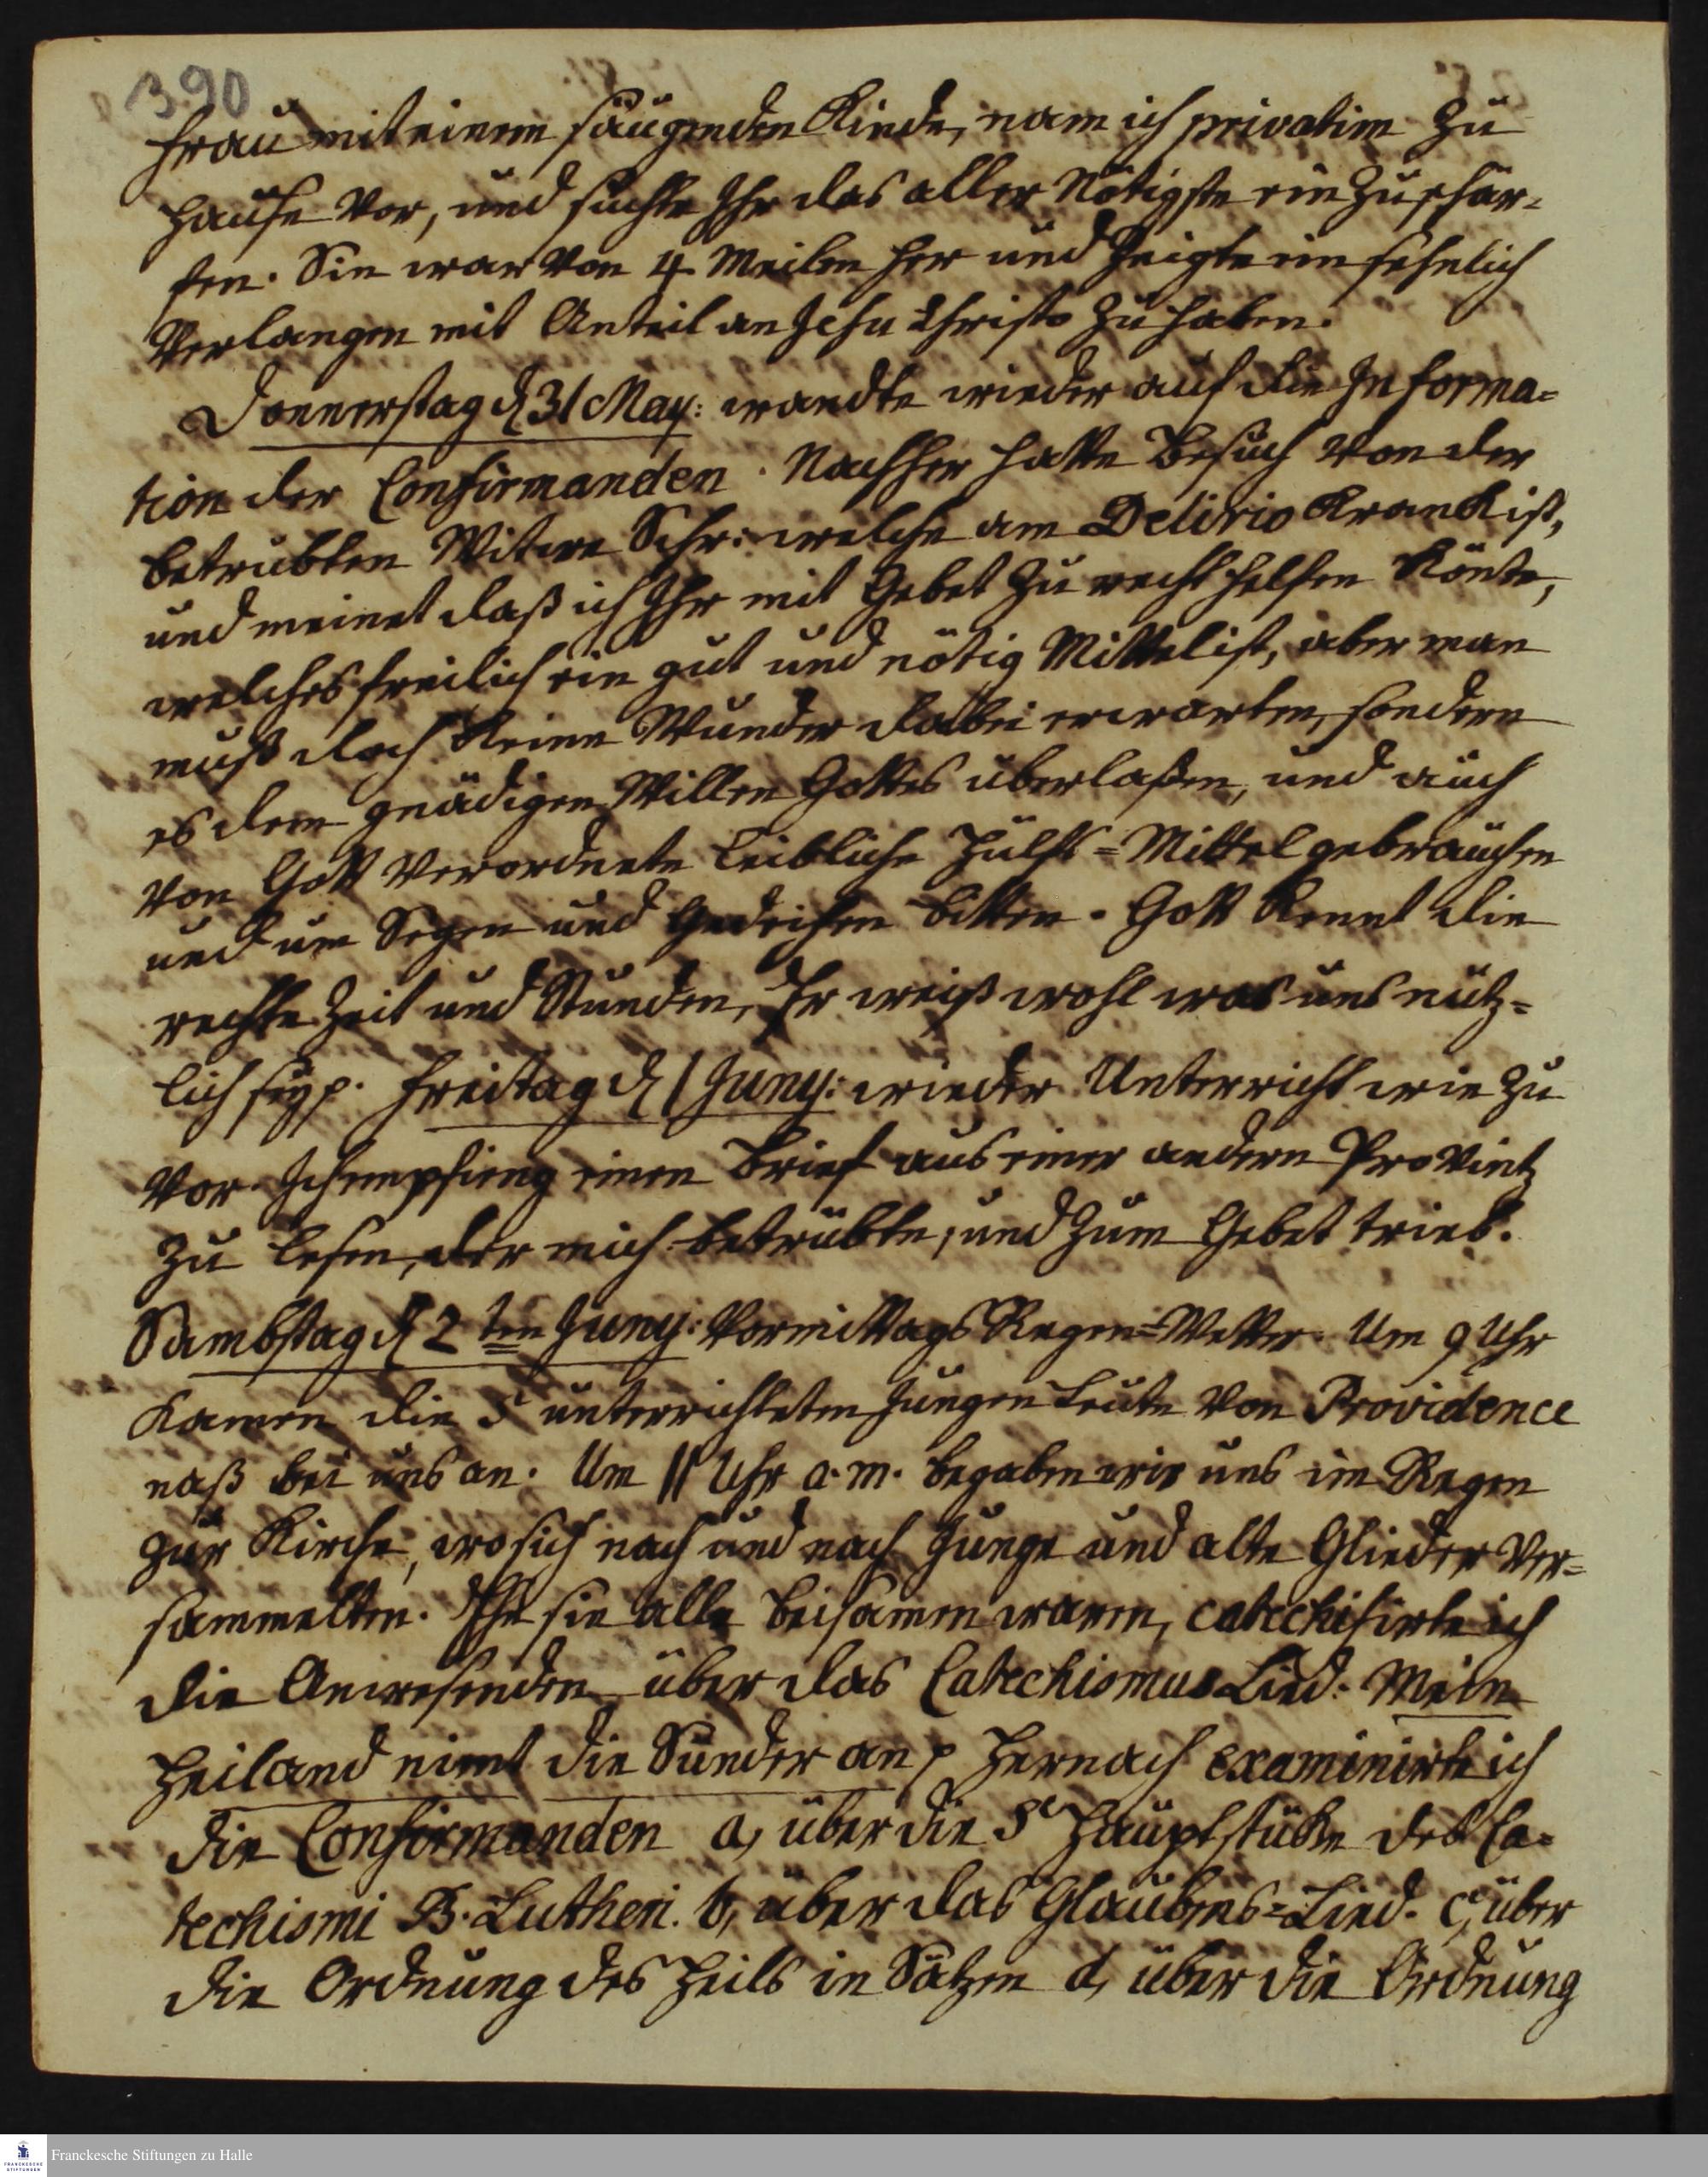 390
Frau mit einem säugenden Kinde, nam ich privatim zu
Hause vor, und suchte Ihr das aller Nötigste ein zu schär-
fen. Sie war von 4 Meilen her und zeigte ein sehnlich
Verlangen mit Anteil an Jesu Christo zu haben.
Donnerstag d 31 May: wandte wieder auf die Informa-
tion der Confirmanden. Nachher hatte Besuch von der
betrübten Witwe Schr: welche am Delirio Kranck ist,
und meinet daß ich Ihr mit Gebet zu recht helfen Könte,
welches freilich ein gut und nötig Mittel ist, aber man
muß doch Keine Wunder dabei erwarten, sondern
es dem gnädigen Willen Gottes überlaßen, und auch
von Gott verordnete Leibliche Hülfs-Mittel gebrauchen
und um Segen und Gedeihen bitten. Gott Kennt die
rechte Zeit und Stunden, Er weiß wohl was uns nütz-
lich sey p. Freitag d 1 Juny: wieder Unterricht wie zu
vor. Ich empfieng einen Brief aus einer andern Provintz
zu lesen, der mich betrübte, und zum Gebet trieb.
Sambstag d 2ten Juny: Vormittags Regen-Wetter. Um 9 Uhr
Kamen die 5 unterrichteten jungen Leute von Providence
naß bei uns an. Um 11 Uhr a. m. begaben wir uns im Regen
zur Kirche, wo sich nach und nach Junge und alte Glieder ver-
sammelten. Ehe sie alle beisamen waren, catechisirte ich
die Anwesenden über das Catechismus Lied: Mein
Heiland nimt die Sünder an p Hernach examinirte ich
die Confirmanden a, über die 5 Hauptstücke des Ca-
techismi B. Lutheri. b, über das Glaubens-Lied. c, über
die Ordnung des Heils in Sätzen d, über die Ordnung
Franckesche Stiftungen zu Halle